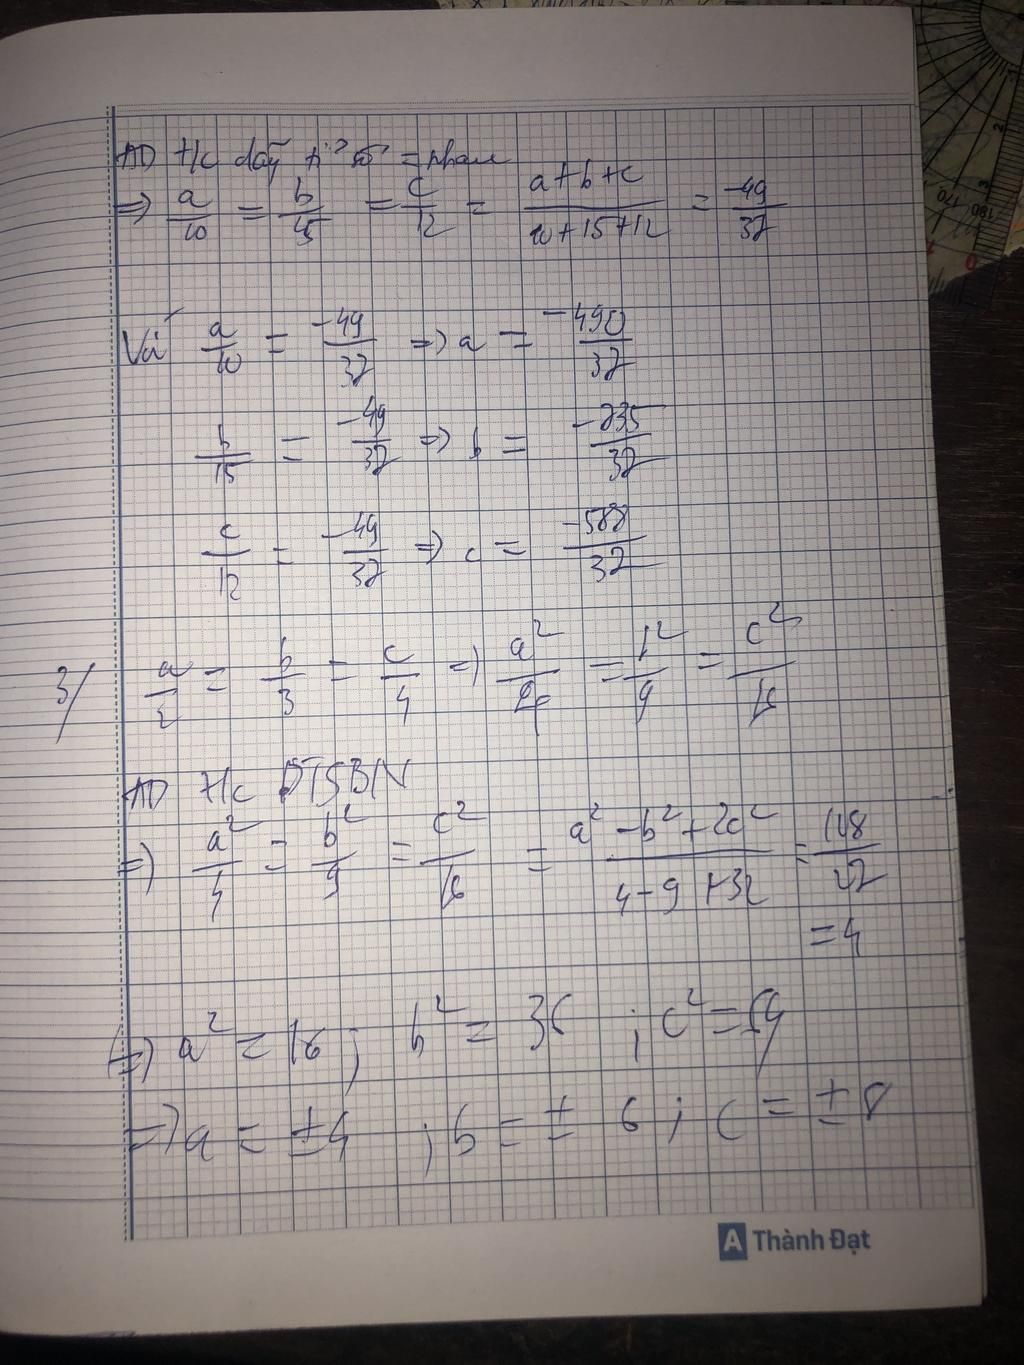 AD t/c dãy tỉ số = nhau
⇒ a/10 = b/15 = c/12 = (a+b+c)/(10+15+12) = -49/37
Với a/10 = -49/37 ⇒ a = -490/37
b/15 = -49/37 ⇒ b = -735/37
c/12 = -49/37 ⇒ c = -588/37
3/ a/2 = b/3 = c/4 ⇒ a²/4 = b²/9 = c²/16
AD t/c DTSBN
⇒ a²/4 = b²/9 = c²/16 = (a² - b² + 2c²)/(4 - 9 + 32) = 108/27
= 4
⇒ a² = 16 ; b² = 36 ; c² = 64
⇒ a = ±4 ; b = ± 6 ; c = ± 8
A Thành Đạt